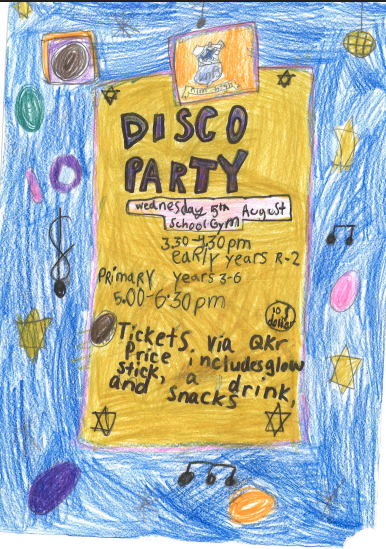 Aim high
DISCO
PARTY
wednesday 5th August
School Gym
3.30-4.30pm
early years R-2
PRIMARY years 3-6
5.00-6:30pm
10 $
dollar
Tickets via QKr
Price includes glow
stick, a drink,
and snacks